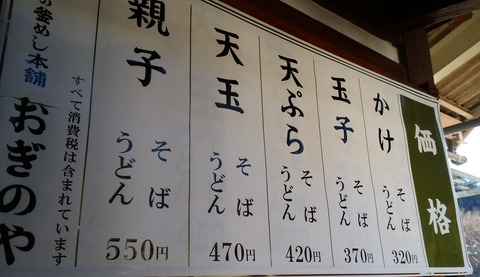 価格
かけ
そば
うどん
320円
玉子
そば
うどん
370円
天ぷら
そば
うどん
420円
天玉
そば
うどん
470円
親子
そば
うどん
550円
すべて消費税は含まれています
の釜めし本舗
おぎのや